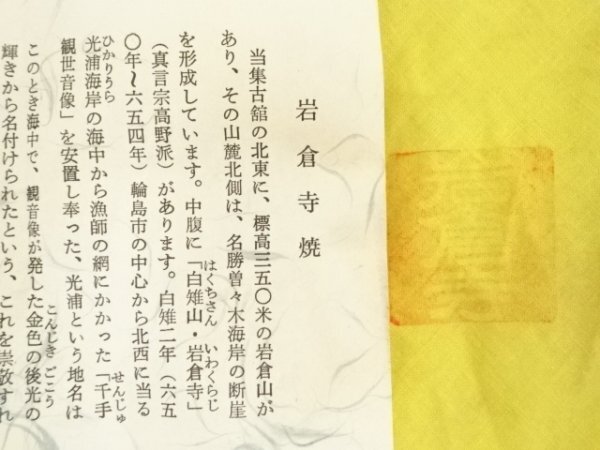 岩倉寺焼
当集古舘の北東に、標高三五〇米の岩倉山が
あり、その山麓北側は、名勝曽々木海岸の断崖
を形成しています。中腹に「白雉山・岩倉寺」
はくちさん いわくらじ
（真言宗高野派）があります。白雉二年（六五
〇年〜六五四年）輪島市の中心から北西に当る
光浦海岸の海中から漁師の網にかかった「千手
ひかりうら
せんじゅ
観世音像」を安置し奉った、光浦という地名は
このとき海中で、観音像が発した金色の後光の
こんじき ごこう
輝きから名付けられたという、これを崇敬すれ